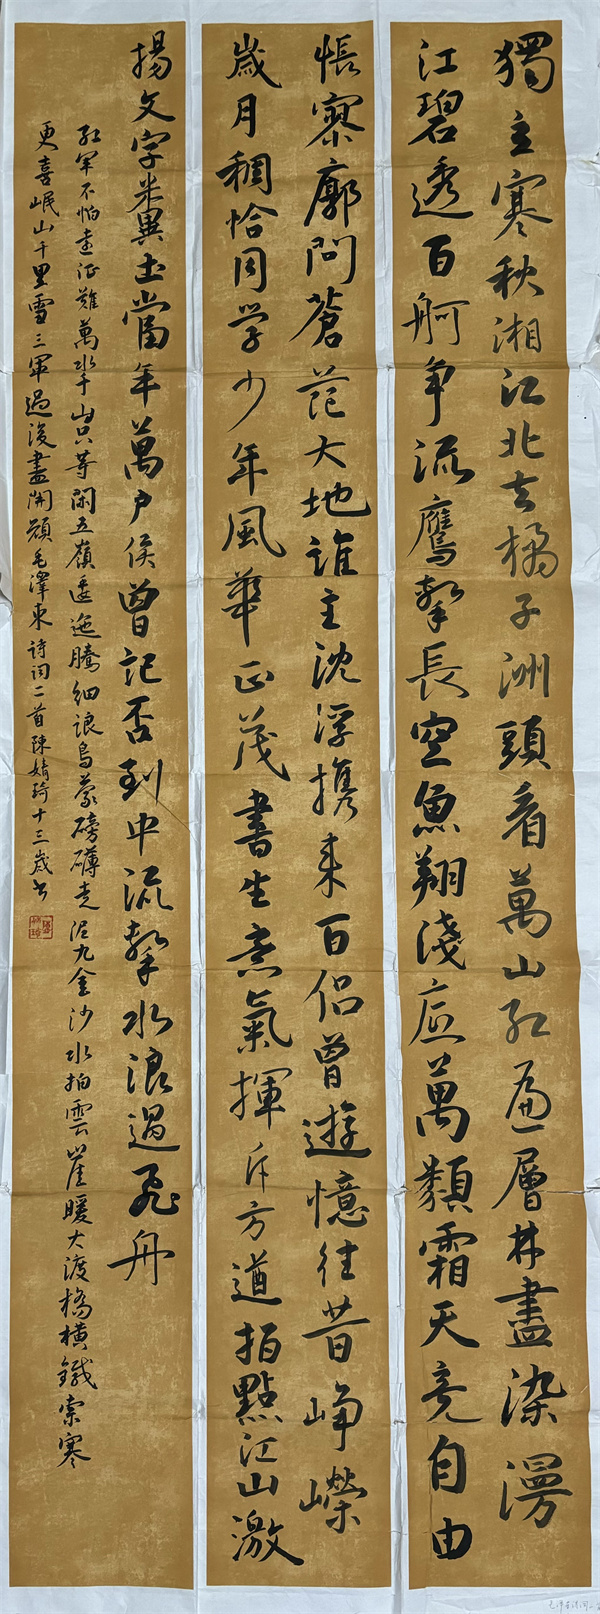 獨立寒秋湘江北去橘子洲頭看萬山红遍層林盡染漫
江碧透百舸争流鷹擊長空魚翔淺底萬類霜天竞自由
悵寥廓問蒼茫大地誰主沈浮携来百侣曾遊憶往昔崢嶸
歲月稠恰同学少年風華正茂書生意氣揮斥方遒指點江山激
揚文字糞土當年萬户侯曾記否到中流擊水浪遏飛舟
红軍不怕遠征難萬水千山只等閑五嶺逶迤騰細浪烏蒙磅礴走泥丸金沙水拍雲崖暖大渡橋横鐵索寒
更喜岷山千里雪三軍過後盡開顏毛澤東詩詞二首陳婧琦十三歲书